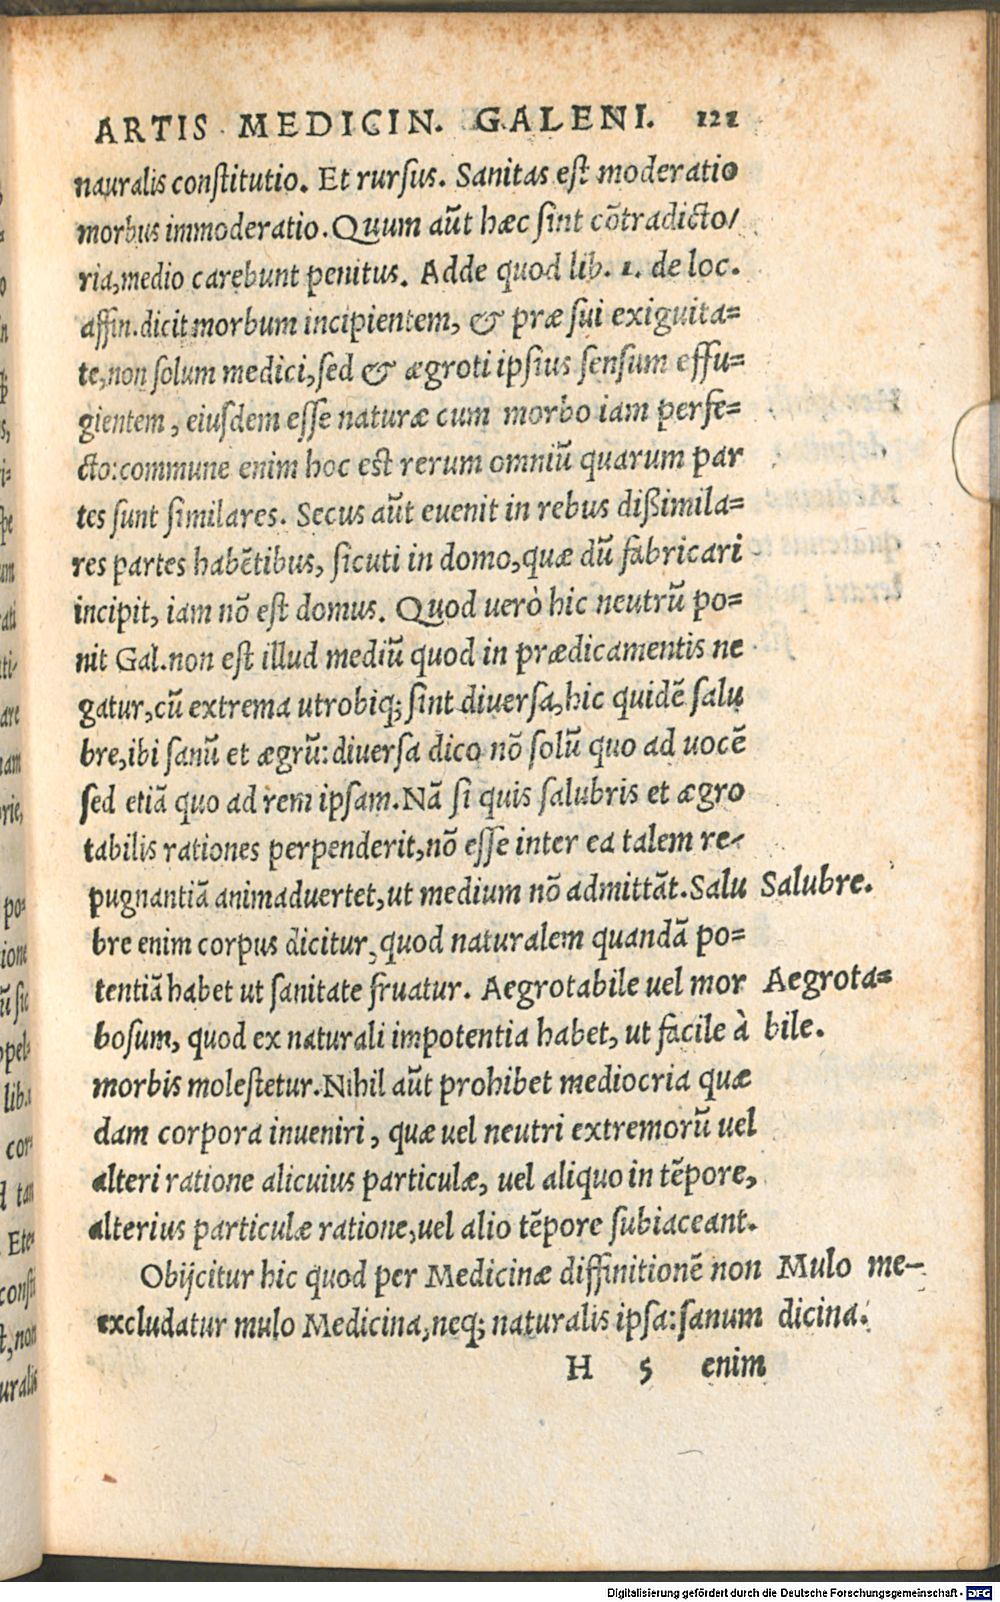 ARTIS MEDICIN. GALENI. 121
nauralis conſtitutio. Et rurſus. Sanitas eſt moderatio
morbus immoderatio. Quum aũt hæc ſint cõtradicto/
ria, medio carebunt penitus. Adde quod lib. 1. de loc.
affin. dicit morbum incipientem, & præ ſui exiguita=
te, non ſolum medici, ſed & ægroti ipſius ſenſum effu=
gientem, eiuſdem eſſe naturæ cum morbo iam perfe=
cto: commune enim hoc est rerum omniũ quarum par
tes ſunt ſimilares. Secus aũt euenit in rebus dißimila=
res partes habẽtibus, ſicuti in domo, quæ dũ fabricari
incipit, iam nõ eſt domus. Quod uerò hic neutrũ po=
nit Gal. non eſt illud mediũ quod in prædicamentis ne
gatur, cũ extrema utrobiq; ſint diuerſa, hic quidẽ ſalu
bre, ibi ſanũ et ægrũ: diuerſa dico nõ ſolũ quo ad uocẽ
ſed etiã quo ad rem ipſam. Nã ſi quis ſalubris et ægro
tabilis rationes perpenderit, nõ eſſe inter ea talem re-
pugnantiã animaduertet, ut medium nõ admittãt. Salu Salubre.
bre enim corpus dicitur, quod naturalem quandã po=
tentiã habet ut ſanitate fruatur. Aegrotabile uel mor Aegrota=
boſum, quod ex naturali impotentia habet, ut facile à bile.
morbis moleſtetur. Nihil aũt prohibet mediocria quæ
dam corpora inueniri, quæ uel neutri extremorũ uel
alteri ratione alicuius particulæ, uel aliquo in tẽpore,
alterius particulæ ratione, uel alio tẽpore ſubiaceant.
Obijcitur hic quod per Medicinæ diffinitionẽ non Mulo me-
excludatur mulo Medicina, neq; naturalis ipſa: ſanum dicina.
H 5 enim
Digitalisierung gefördert durch die Deutsche Forschungsgemeinschaft - DFG